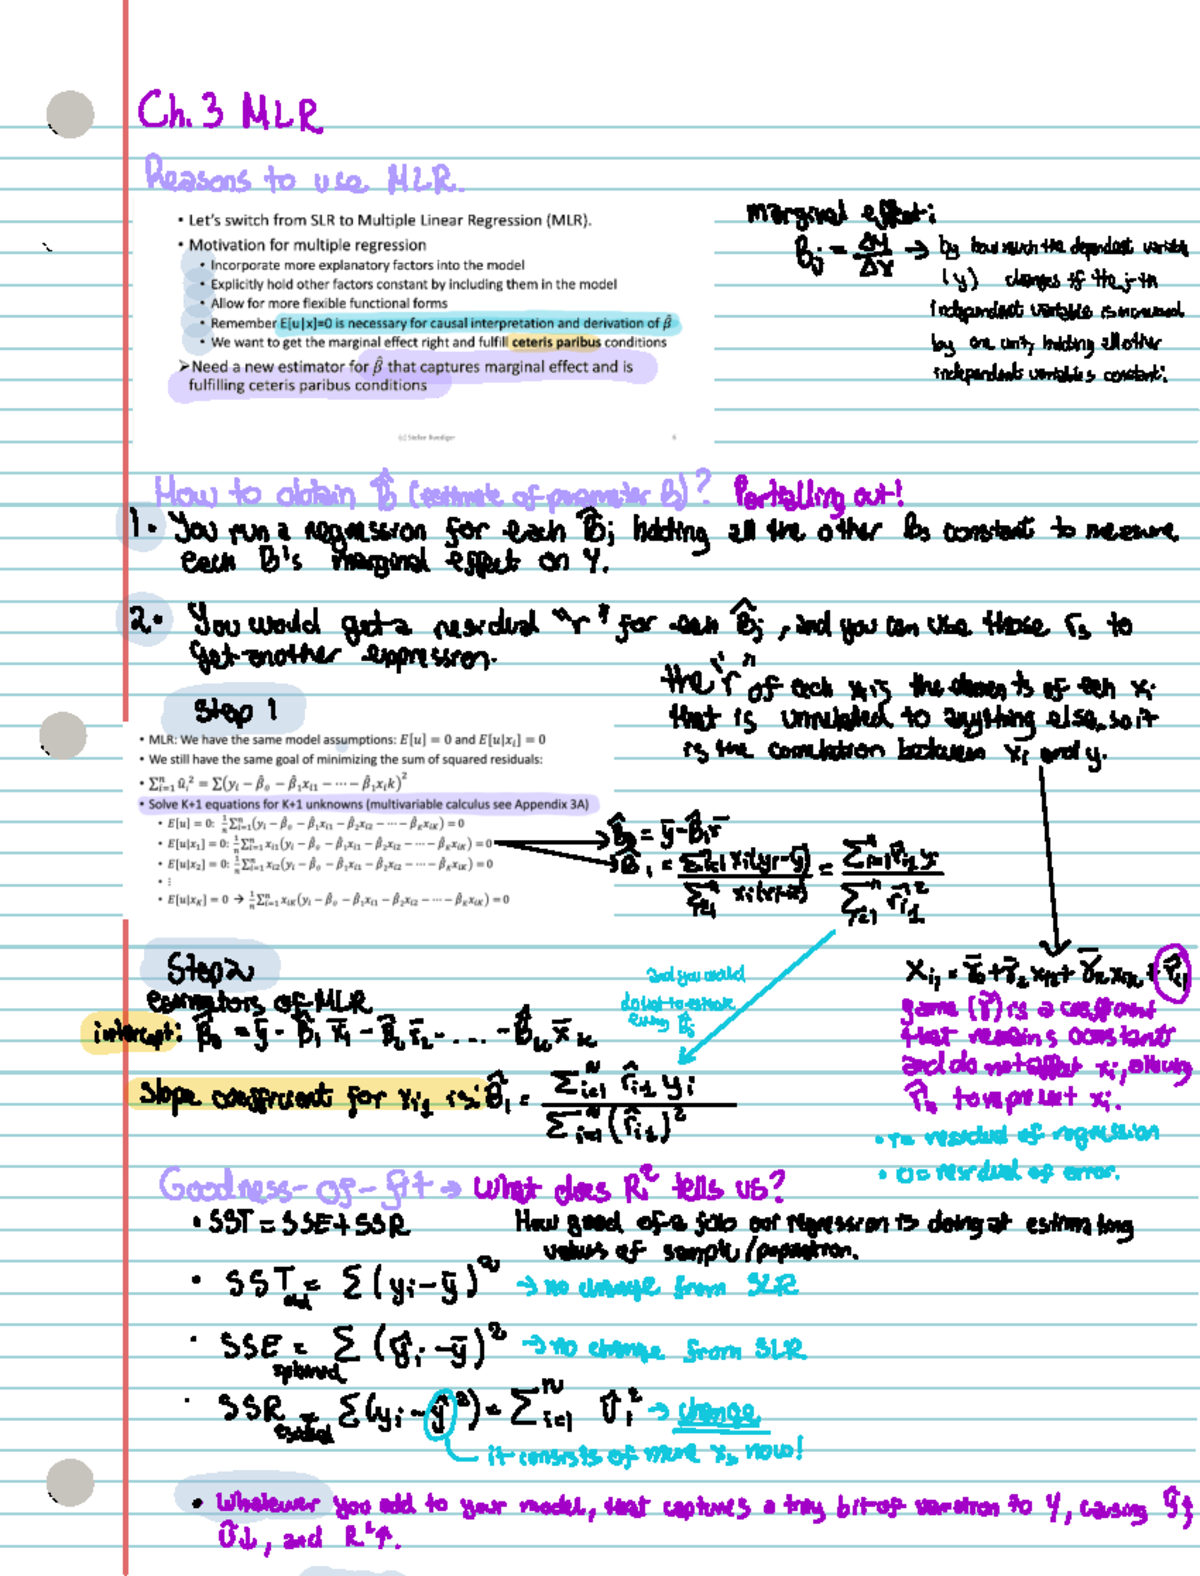 Ch. 3 MLR
Reasons to use MLR.
• Let's switch from SLR to Multiple Linear Regression (MLR).
• Motivation for multiple regression
• Incorporate more explanatory factors into the model
• Explicitly hold other factors constant by including them in the model
• Allow for more flexible functional forms
• Remember E[u|x]=0 is necessary for causal interpretation and derivation of β̂
• We want to get the marginal effect right and fulfill ceteris paribus conditions
➢Need a new estimator for β̂ that captures marginal effect and is
fulfilling ceteris paribus conditions
6
marginal effect:
Bj = ΔY/ΔX → by how much the dependent variable
(y) changes if the j-th
independent variable is increased
by one unity holding all other
independents variables constant.
How to obtain B̂ (estimate of parameter B)? Partialling out!
1. You run a regression for each B̂j holding all the other Bs constant to measure
each B's marginal effect on Y.
2. You would get a residual "r" for each B̂j, and you can use those rs to
get another expression.
the "r" of each xi is the of each xi
that is unrelated to anything else, so it
is the correlation between xi and y.
Step 1
• MLR: We have the same model assumptions: E[u] = 0 and E[u|xᵢ] = 0
• We still have the same goal of minimizing the sum of squared residuals:
• Σⁿᵢ₌₁ ûᵢ² = Σ(yᵢ − β̂₀ − β̂₁xᵢ₁ − ⋯ − β̂₁xᵢk)²
• Solve K+1 equations for K+1 unknowns (multivariable calculus see Appendix 3A)
• E[u] = 0: 1/n Σⁿᵢ₌₁(yᵢ − β̂₀ − β̂₁xᵢ₁ − β̂₂xᵢ₂ − ⋯ − β̂ₖxᵢₖ) = 0
• E[u|x₁] = 0: 1/n Σⁿᵢ₌₁xᵢ₁(yᵢ − β̂₀ − β̂₁xᵢ₁ − β̂₂xᵢ₂ − ⋯ − β̂ₖxᵢₖ) = 0
• E[u|x₂] = 0: 1/n Σⁿᵢ₌₁xᵢ₂(yᵢ − β̂₀ − β̂₁xᵢ₁ − β̂₂xᵢ₂ − ⋯ − β̂ₖxᵢₖ) = 0
• ⋮
• E[u|xₖ] = 0 → 1/n Σⁿᵢ₌₁xᵢₖ(yᵢ − β̂₀ − β̂₁xᵢ₁ − β̂₂xᵢ₂ − ⋯ − β̂ₖxᵢₖ) = 0
B̂₀ = ȳ − B̂₁x̄
B̂₁ = Σⁿᵢ₌₁ xᵢ(yᵢ − ȳ) / Σⁿᵢ₌₁ xᵢ(xᵢ − x̄) = Σⁿᵢ₌₁ r̂ᵢ₁ yᵢ / Σⁿᵢ₌₁ r̂ᵢ₁²
Step 2
estimators of MLR
intercept: B̂₀ = ȳ − B̂₁x̄₁ − B̂₂x̄₂ − ... − B̂ₖx̄ₖ
Slope coefficient for xᵢ₁ is: B̂₁ = Σᴺᵢ₌₁ r̂ᵢ₁ yᵢ / Σᴺᵢ₌₁ (r̂ᵢ₁)²
and you would
do that to estimate
every B̂j
Xᵢ₁ = γ̄₀ + γ̄₂xᵢ₂ + γ̄ₖxᵢₖ + r̂ᵢ₁
gama (γ̄) is a coefficient
that remains constant
and do not affect xi, allowing
r̂ᵢ₁ to represent xi.
• r = residual of regression
• U = residual of error.
Goodness-of-fit → What does R² tells us?
• SST = SSE + SSR
How good of a job our regression is doing at estimating
values of sample/population.
• SST total = Σ(yᵢ − ȳ)² → no change from SLR
• SSE explained = Σ(ŷᵢ − ȳ)² → no change from SLR
• SSR residual = Σ(yᵢ − ŷ²) = Σᴺᵢ₌₁ Ûᵢ² → change
it consists of more xs now!
• Whatever you add to your model, that captures a tiny bit of variation to Y, causing ŷ↑
Û↓, and R²↑.